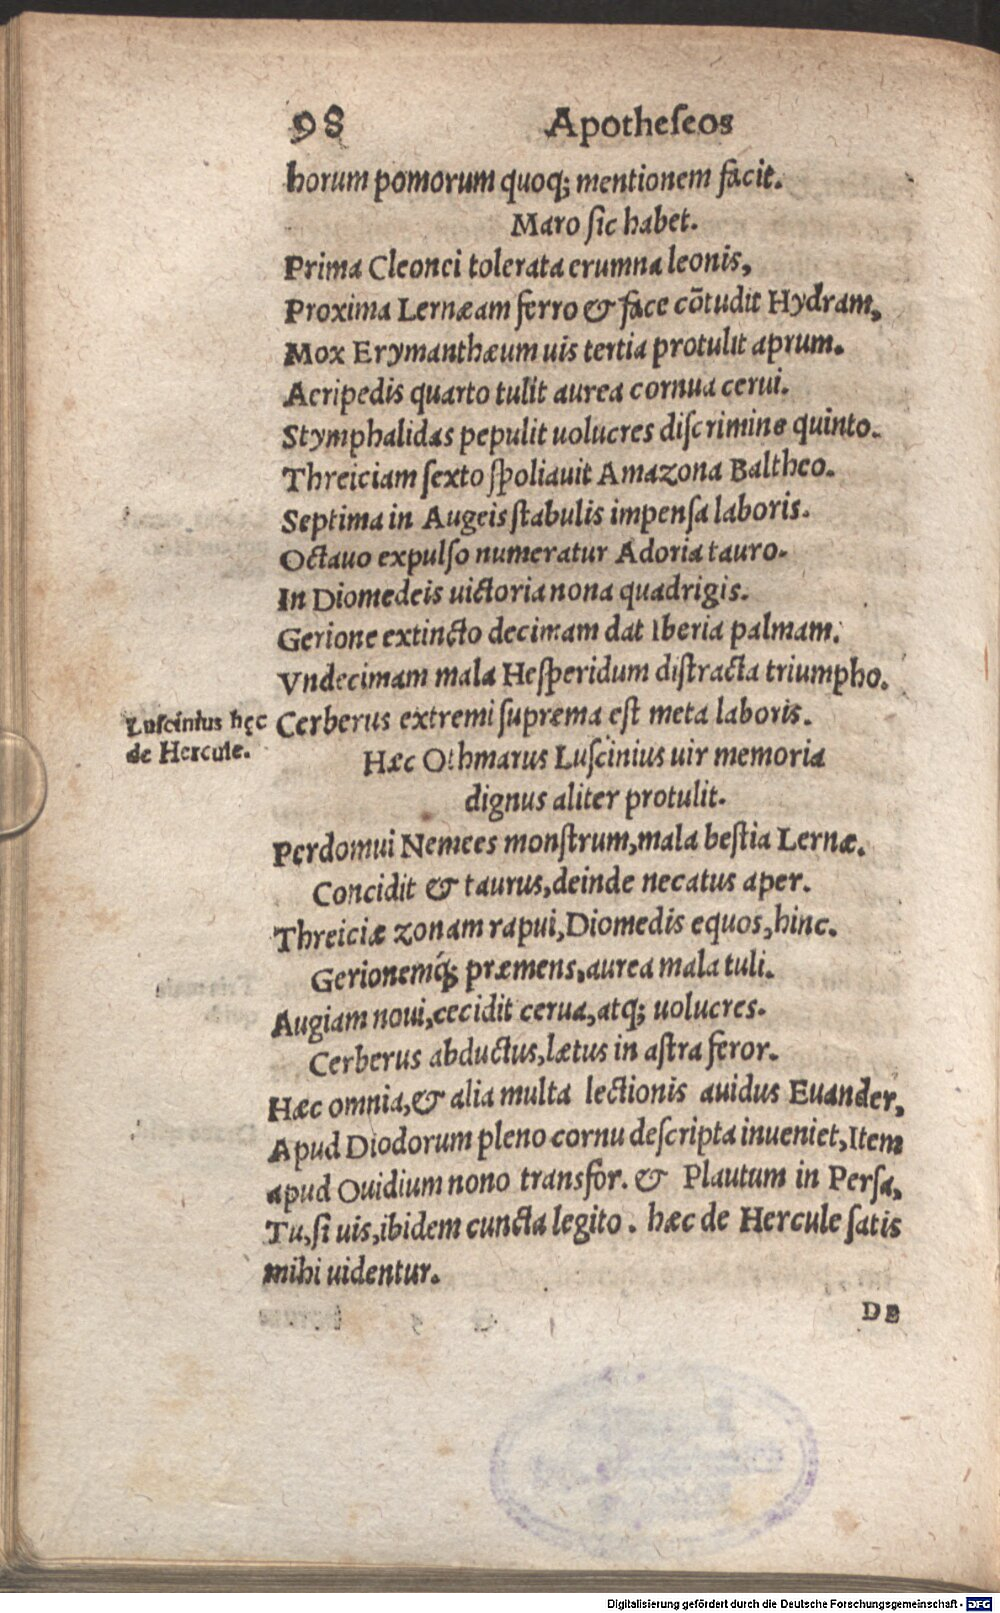 98 Apotheseos
horum pomorum quoq; mentionem facit.
Maro sic habet.
Prima Cleonei tolerata erumna leonis,
Proxima Lernæam ferro & face cōtudit Hydram,
Mox Erymanthæum uis tertia protulit aprum.
Aeripedis quarto tulit aurea cornua cerui.
Stymphalidas pepulit uolucres discrimine quinto.
Threiciam sexto spoliauit Amazona Baltheo.
Septima in Augeis stabulis impensa laboris.
Octauo expulso numeratur Adoria tauro.
In Diomedeis uictoria nona quadrigis.
Gerione extincto decimam dat Iberia palmam.
Vndecimam mala Hesperidum distracta triumpho.
Luscinius hęc
de Hercule.
Cerberus extremi suprema est meta laboris.
Hæc Othmarus Luscinius uir memoria
dignus aliter protulit.
Perdomui Nemees monstrum, mala bestia Lernæ.
Concidit & taurus, deinde necatus aper.
Threiciæ zonam rapui, Diomedis equos, hinc.
Gerionemq́; præmens, aurea mala tuli.
Augiam noui, cecidit cerua, atq; uolucres.
Cerberus abductus, lætus in astra feror.
Hæc omnia, & alia multa lectionis auidus Euander,
Apud Diodorum pleno cornu descripta inueniet, Item
apud Ouidium nono transfor. & Plautum in Persa,
Tu, si uis, ibidem cuncta legito. hæc de Hercule satis
mihi uidentur.
DE
Digitalisierung gefördert durch die Deutsche Forschungsgemeinschaft - DFG